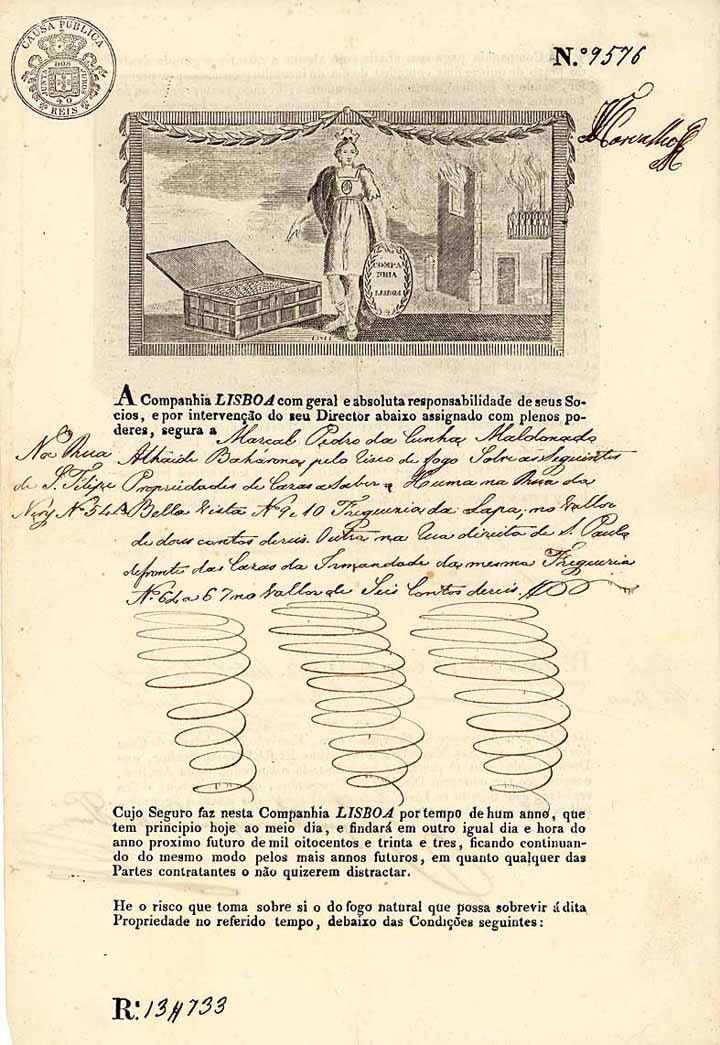 CAUSA PUBLICA
JUNTA DOS JUROS
40
REIS
N.º 9576
Carvalho
COMPA
NHIA
LISBOA
A Companhia LISBOA com geral e absoluta responsabilidade de seus So-
cios, e por intervenção do seu Director abaixo assignado com plenos po-
deres, segura a Marcal Pedro da Cunha Maldonado
Athaide Bahárona, pelo risco de fogo Sobre as Seguintes
Propriedades de Cazas a Saber Huma na Rua da
Bella Vista Nº 9 e 10 Freguezia da Lapa, no Vallor
de dous contos dereis. Outra na Rua direita de S. Paulo
defronte das Cazas da Irmandade da mesma Freguezia
Nº 64 a 67 no Vallor de Seis Contos dereis.
Na Rua
de S. Filipe
Nery Nº
Cujo Seguro faz nesta Companhia LISBOA por tempo de hum anno, que
tem principio hoje ao meio dia, e findará em outro igual dia e hora do
anno proximo futuro de mil oitocentos e trinta e tres, ficando continuan-
do do mesmo modo pelos mais annos futuros, em quanto qualquer das
Partes contratantes o não quizerem distractar.
He o risco que toma sobre si o do fogo natural que possa sobrevir á dita
Propriedade no referido tempo, debaixo das Condições seguintes:
R.s 13$733